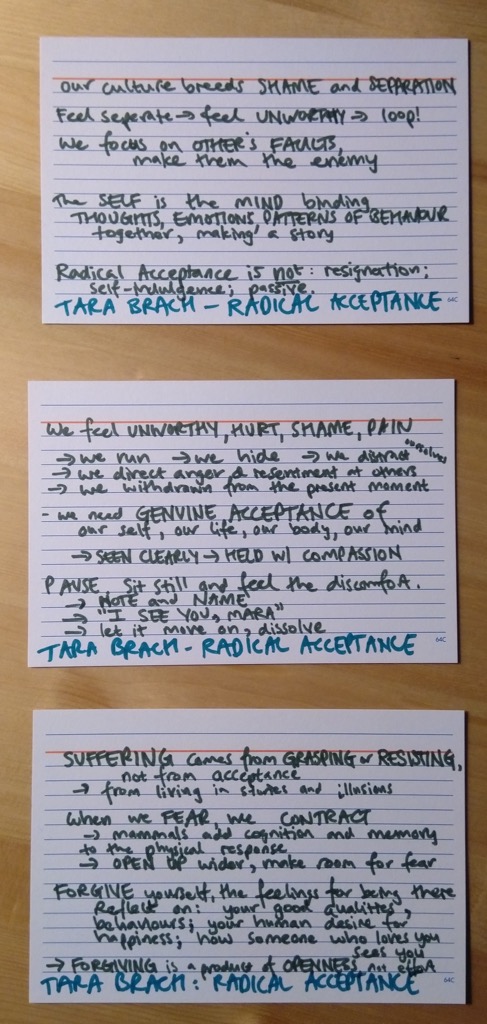 our culture breeds SHAME and SEPARATION
Feel seperate → feel UNWORTHY → loop!
We focus on OTHER'S FAULTS,
make them the enemy
The SELF is the MIND binding
THOUGHTS, EMOTIONS, PATTERNS OF BEHAVOUR
together, making a story
Radical Acceptance is not: resignation;
self-indulgence; passive.
TARA BRACH - RADICAL ACCEPTANCE
64C
We feel UNWORTHY, HURT, SHAME, PAIN
→ we run → we hide → we distract ourselves
→ we direct anger & resentment at others
→ we withdrawn from the present moment
- we need GENUINE ACCEPTANCE of
our self, our life, our body, our mind
→ SEEN CLEARLY → HELD W/ COMPASSION
PAUSE. Sit still and feel the discomfort.
→ NOTE and NAME
→ "I SEE YOU, MARA"
→ let it move on, dissolve
TARA BRACH - RADICAL ACCEPTANCE
64C
SUFFERING comes from GRASPING or RESISTING,
not from acceptance
→ from living in stories and illusions
When we FEAR, we CONTRACT
→ mammals add cognition and memory
to the physical response
→ OPEN UP wider, make room for fear
FORGIVE yourself, the feelings for being there
Reflect on: your good qualities,
behaviours; your human desire for
happiness; how someone who loves you
sees you
→ FORGIVING is a product of OPENNESS not effort
TARA BRACH: RADICAL ACCEPTANCE
64C